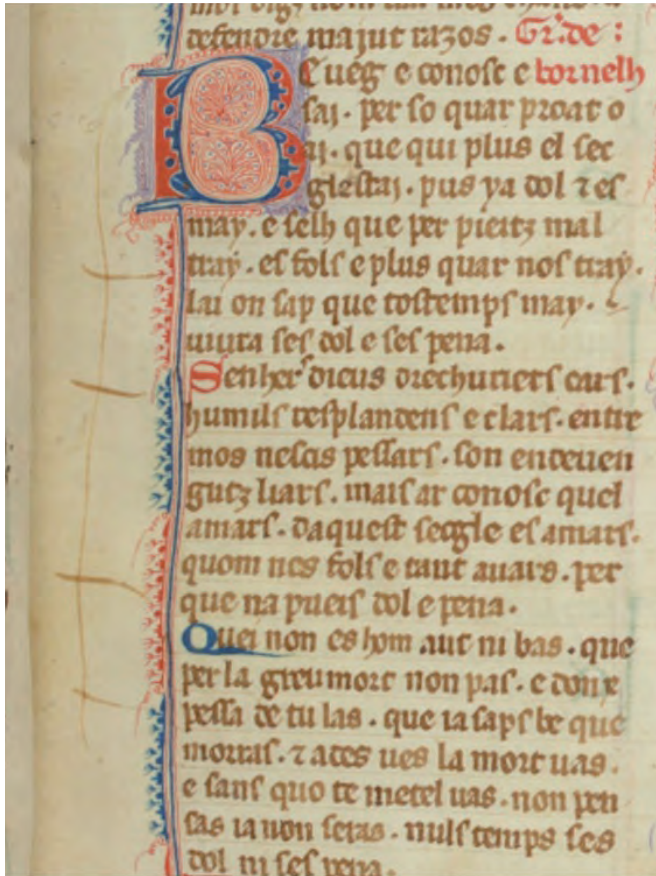 defendre majut razos. Gr̃.de:
Be ueg e conosc e bornelh
sai. per so quar proat o
ai. que qui plus el sec
gle estai. pus ya dol ⁊ es
may. e selh que per pieitz mal
tray. es fols e plus quar nos tray.
lai on sap que tostemps may.
uiura ses dol e ses pena.
Senher dieus drechuriers cars.
humils resplandens e clars. entre
mos nescis pessars. son endeuen
gutz liars. mais ar conosc quel
amars. daquest seggle es amars.
quom nes fols e tant auars. per
que na pueis dol e pena.
Quei non es hom aut ni bas. que
per la greu mort non pas. e donx
pessa de tu las. que ia saps be que
morras. ⁊ ades ues la mort uas.
e sans quo te metel uas. non pen
sas ia uon seras. nuls temps ses
dol ni ses pena.